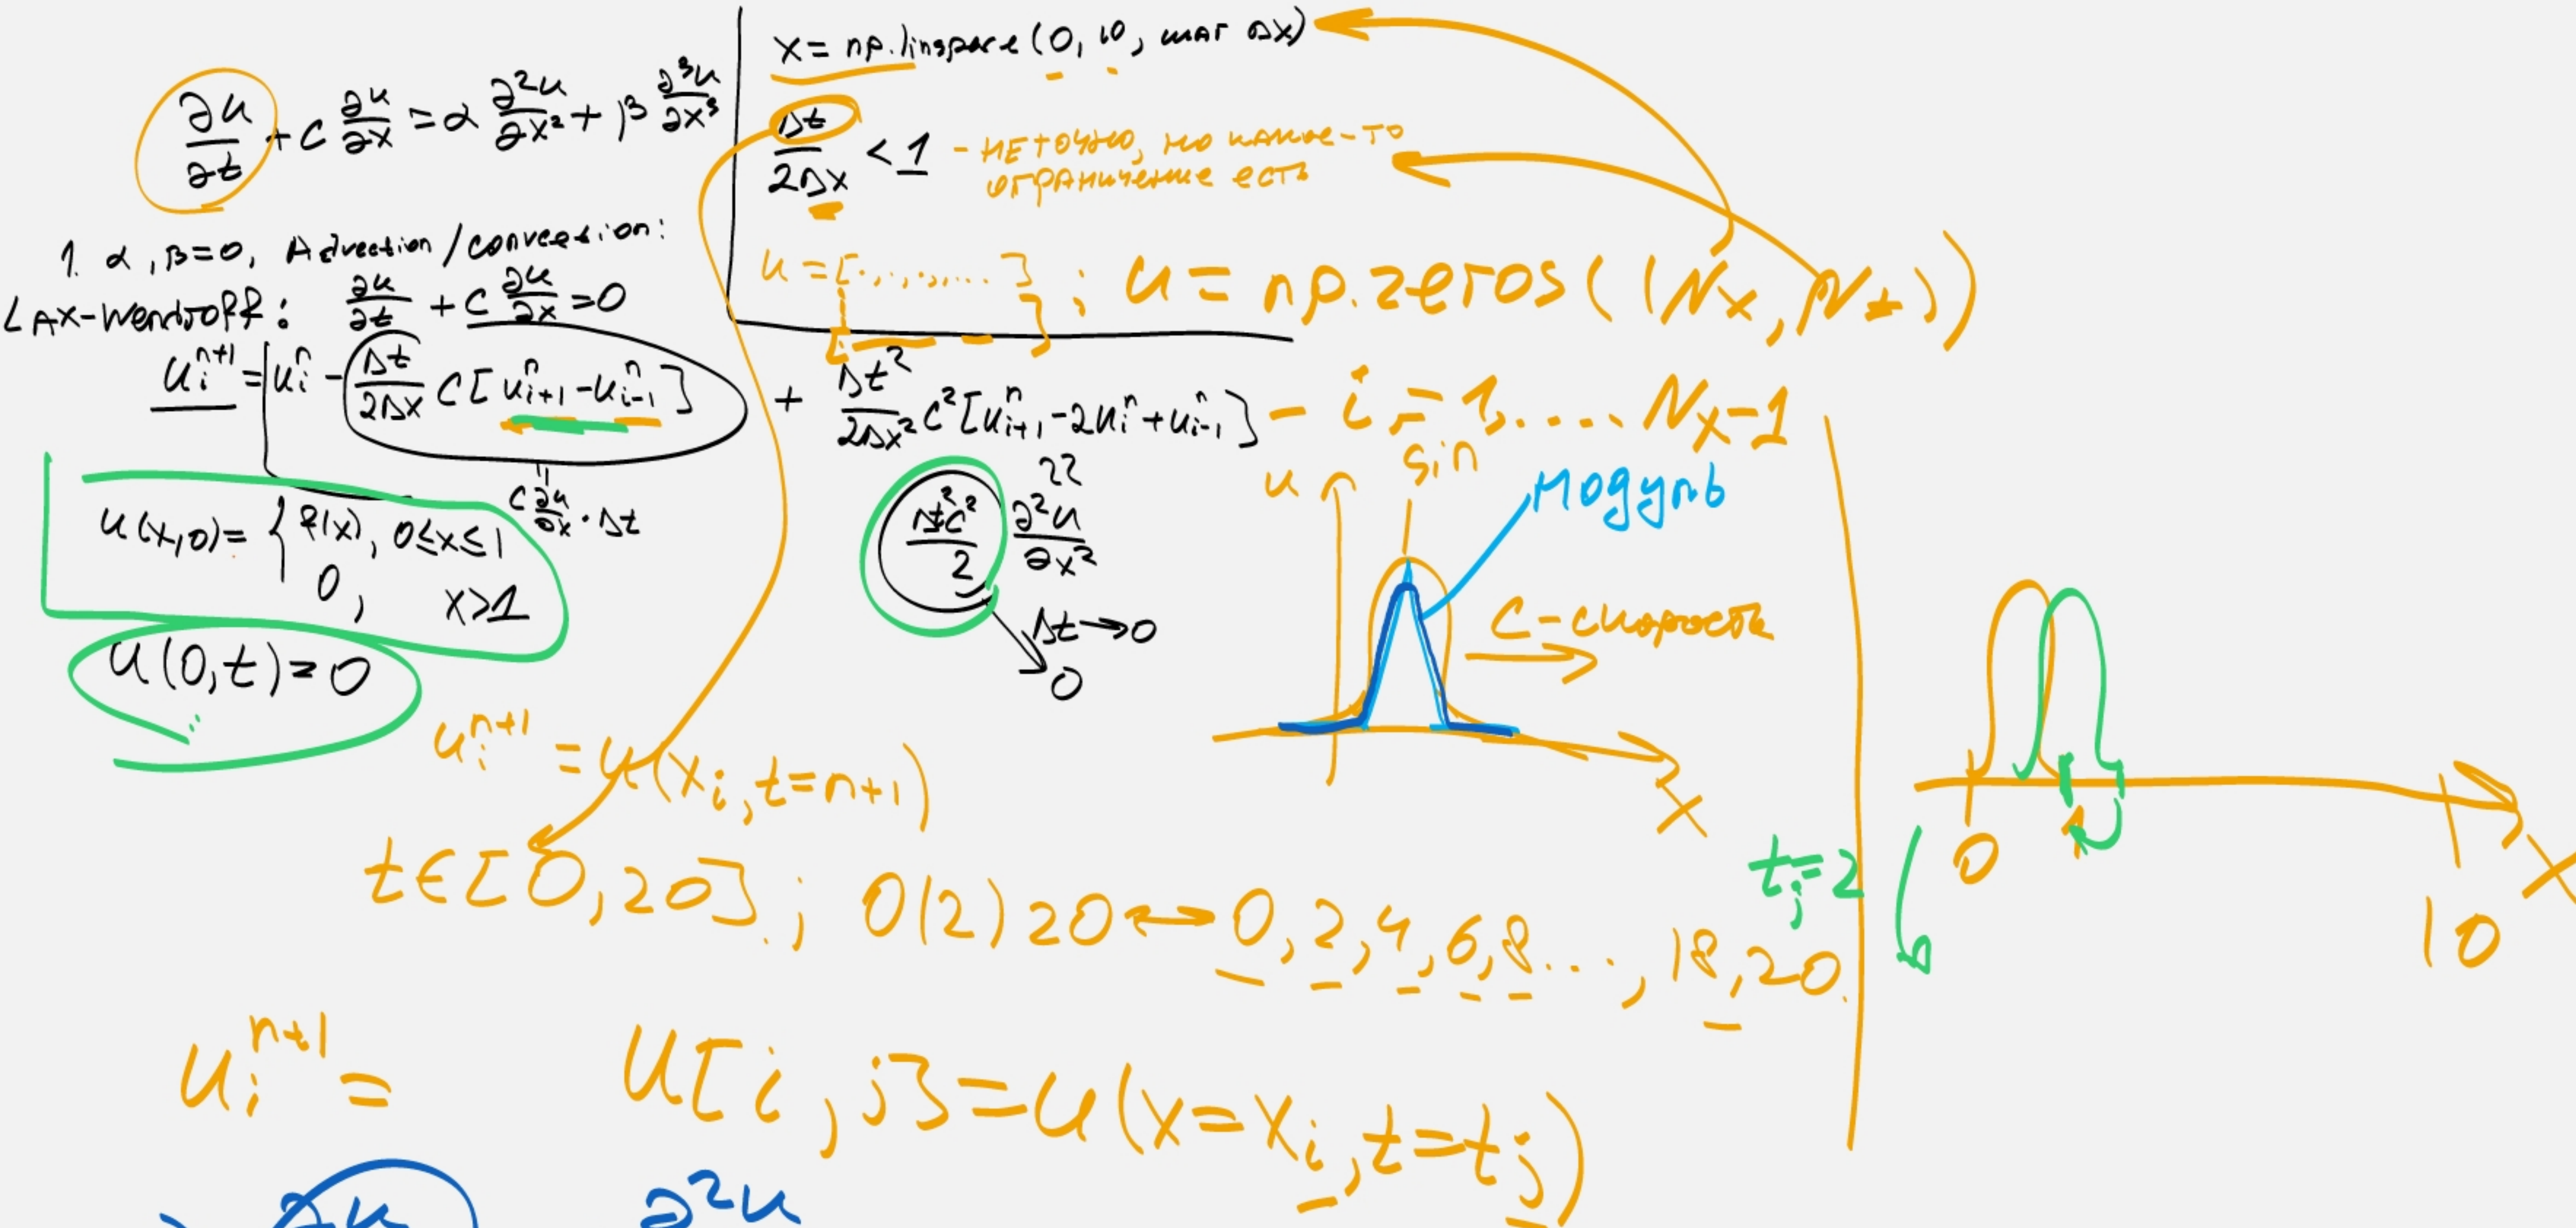 ∂u/∂t + c ∂u/∂x = α ∂²u/∂x² + β ∂³u/∂x³
x = np.linspace(0, 10, шаг Δx)
Δt/2Δx < 1 - НЕ ТОЧНО, НО КАКОЕ-ТО
ОГРАНИЧЕНИЕ ЕСТЬ
u = [.,.,.,....] ; u = np.zeros((Nx, Nt))
1. α, β = 0, Advection/convection:
LAX-Wendroff: ∂u/∂t + c ∂u/∂x = 0
u_i^{n+1} = u_i^n - Δt/2Δx c [u_{i+1}^n - u_{i-1}^n] + Δt²/2Δx² c² [u_{i+1}^n - 2u_i^n + u_{i-1}^n] - i = 1, .... Nx-1
c ∂u/∂x · Δt
Δt²c²/2 ∂²u/∂x²
Δt → 0
0
u(x,0) = { f(x), 0 ≤ x ≤ 1
0, x > 1
u(0,t) = 0
u
sin
модуль
c - скорость
x
u_i^{n+1} = u(x_i, t = n+1)
t ∈ [0, 20]; 0(2)20 ↔ 0, 2, 4, 6, 8 ..., 18, 20.
t_j = 2
0
1
10
x
u_i^{n+1} =
u[i, j] = u(x = x_i, t = t_j)
∂²u